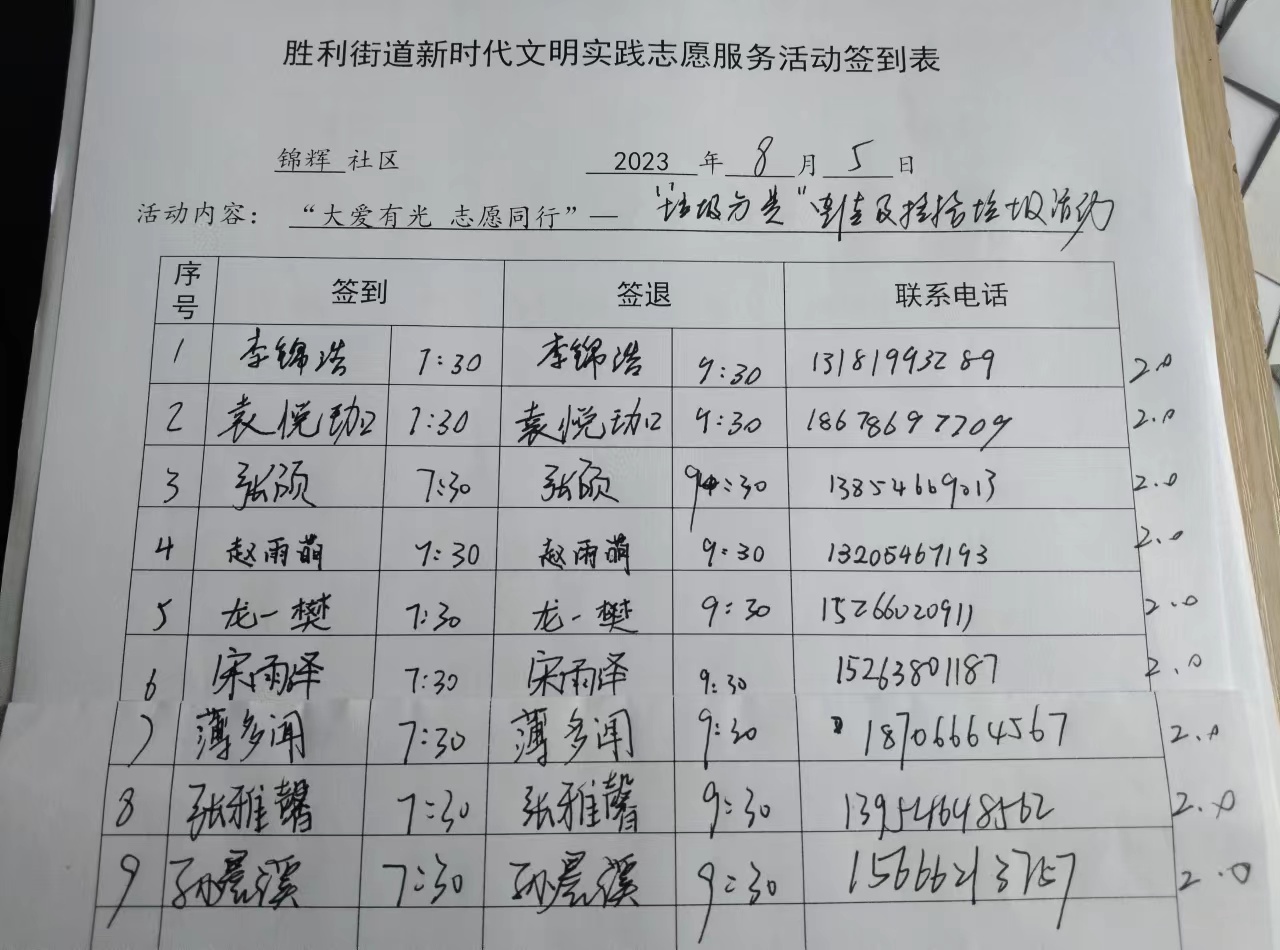 胜利街道新时代文明实践志愿服务活动签到表
锦辉 社区 2023 年 8 月 5 日
活动内容： “大爱有光 志愿同行”— “垃圾分类”宣传及捡拾垃圾活动
序号 签到 签退 联系电话
1 李锦浩 7:30 李锦浩 9:30 13181993289 2.0
2 袁悦 7:30 袁悦 9:30 18678697709 2.0
3 张颀 7:30 张颀 9:30 13854669013 2.0
4 赵雨萌 7:30 赵雨萌 9:30 13205467193 2.0
5 龙一樊 7:30 龙一樊 9:30 15266020911 2.0
6 宋雨泽 7:30 宋雨泽 9:30 15263801187 2.0
7 薄多闻 7:30 薄多闻 9:30 18706664567 2.0
8 张雅馨 7:30 张雅馨 9:30 13954648562 2.0
9 孙景溪 7:30 孙景溪 9:30 15666213757 2.0